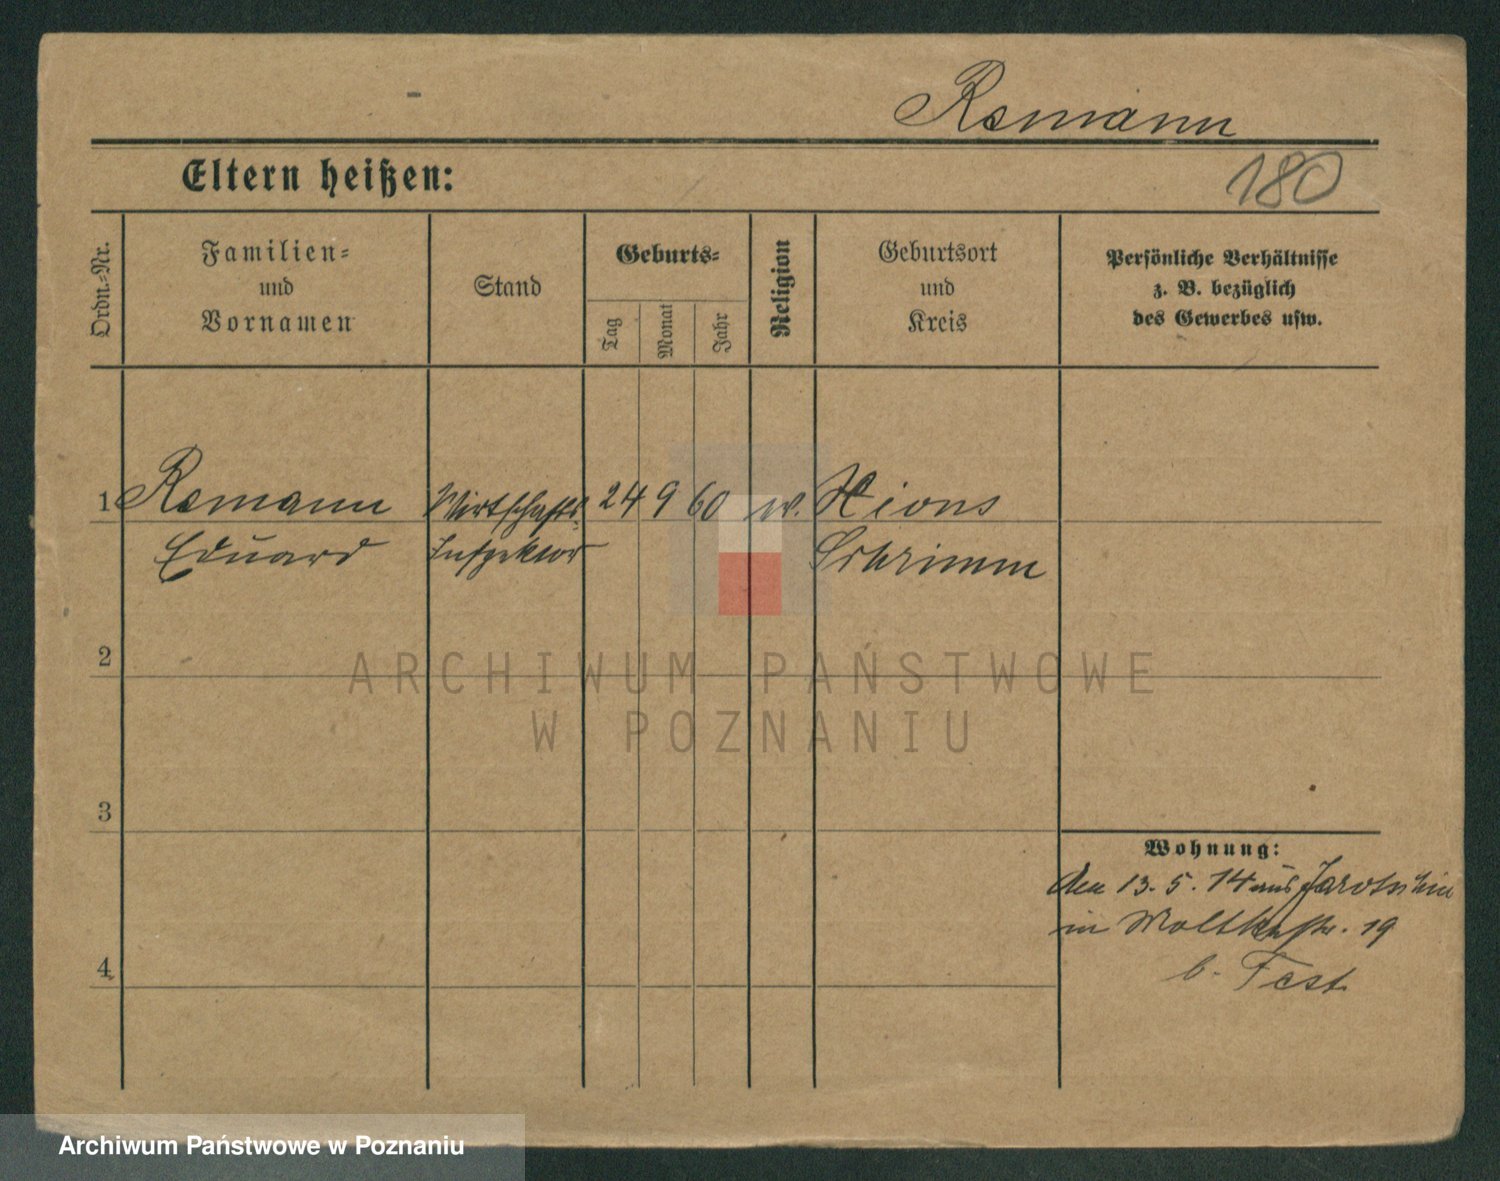 Remann
Eltern heißen:
180
Ordn.-Nr.
Familien-
und
Vornamen
Stand
Geburts-
Tag
Monat
Jahr
Religion
Geburtsort
und
Kreis
Persönliche Verhältnisse
z. B. bezüglich
des Gewerbes usw.
1 Remann Wirtschafts 24 9 60 Xions
Eduard Inspektor Schrimm
2
3
4
Wohnung:
den 13.5.14 aus Jarotschin
in Moltkestr. 19
b. Fest
ARCHIWUM PAŃSTWOWE
W POZNANIU
Archiwum Państwowe w Poznaniu